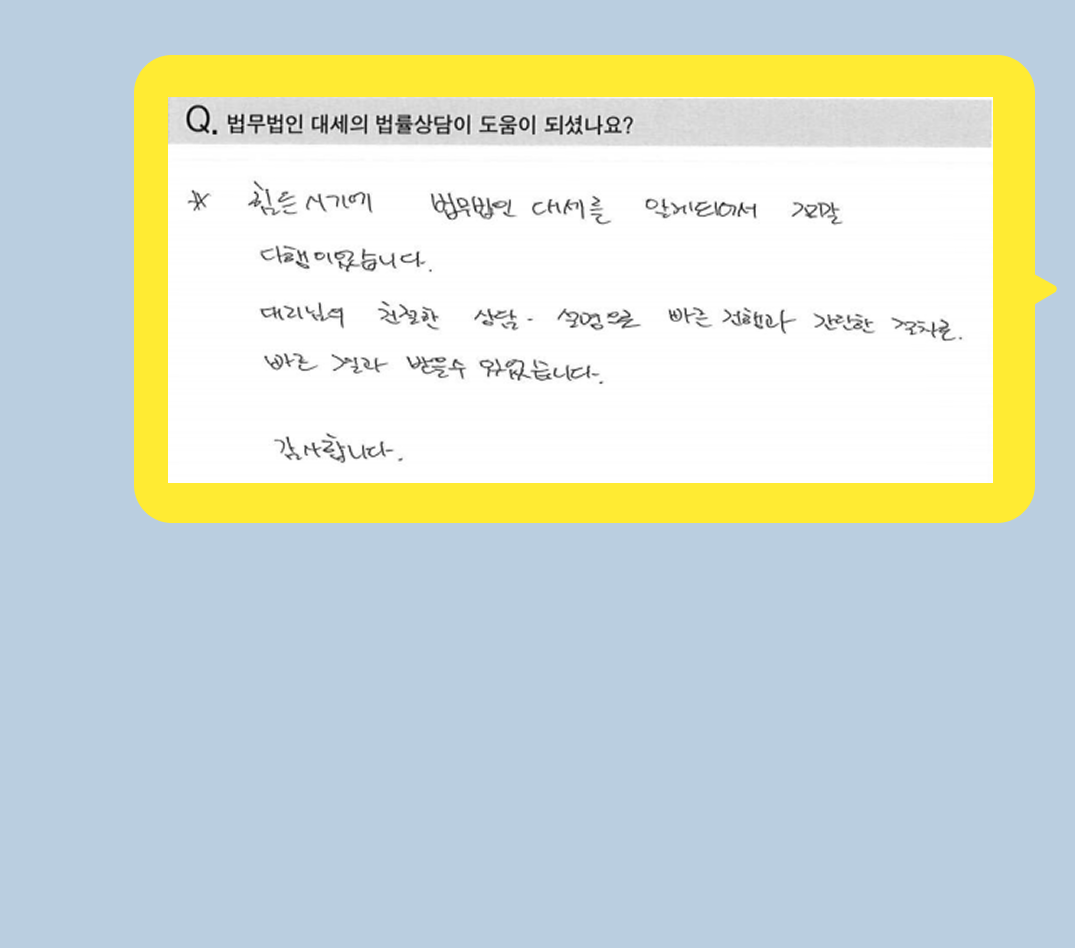 Q. 법무법인 대세의 법률상담이 도움이 되셨나요?
* 힘든시기에 법무법인 대세를 알게되어서 정말
다행이였습니다.
대리님의 친절한 상담. 설명으로 빠른 진행과 간단한 절차로.
빠른 결과 받을수 있었습니다.
감사합니다.